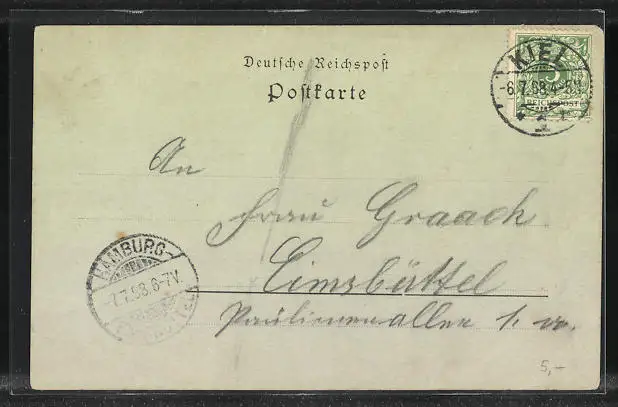 Deutsche Reichspost
Postkarte
KIEL
-6.7.98.4-5N.
5
REICHSPOST
An
Frau Graack
Eimsbüttel
Paulinenallee 1. w.
HAMBURG-
7.7.98.6-7V.
5,-